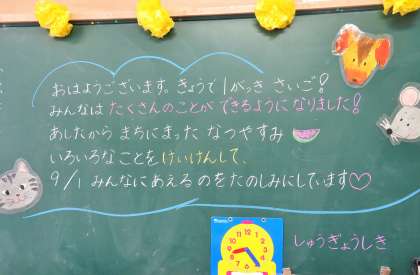 おはようございます。きょうで1がっき さいご!
みんなは たくさんのことが できるように なりました!
あしたから まちにまった なつやすみ
いろいろなことを けいけんして、
9/1 みんなにあえる のを たのしみにしています♡
しゅうぎょうしき